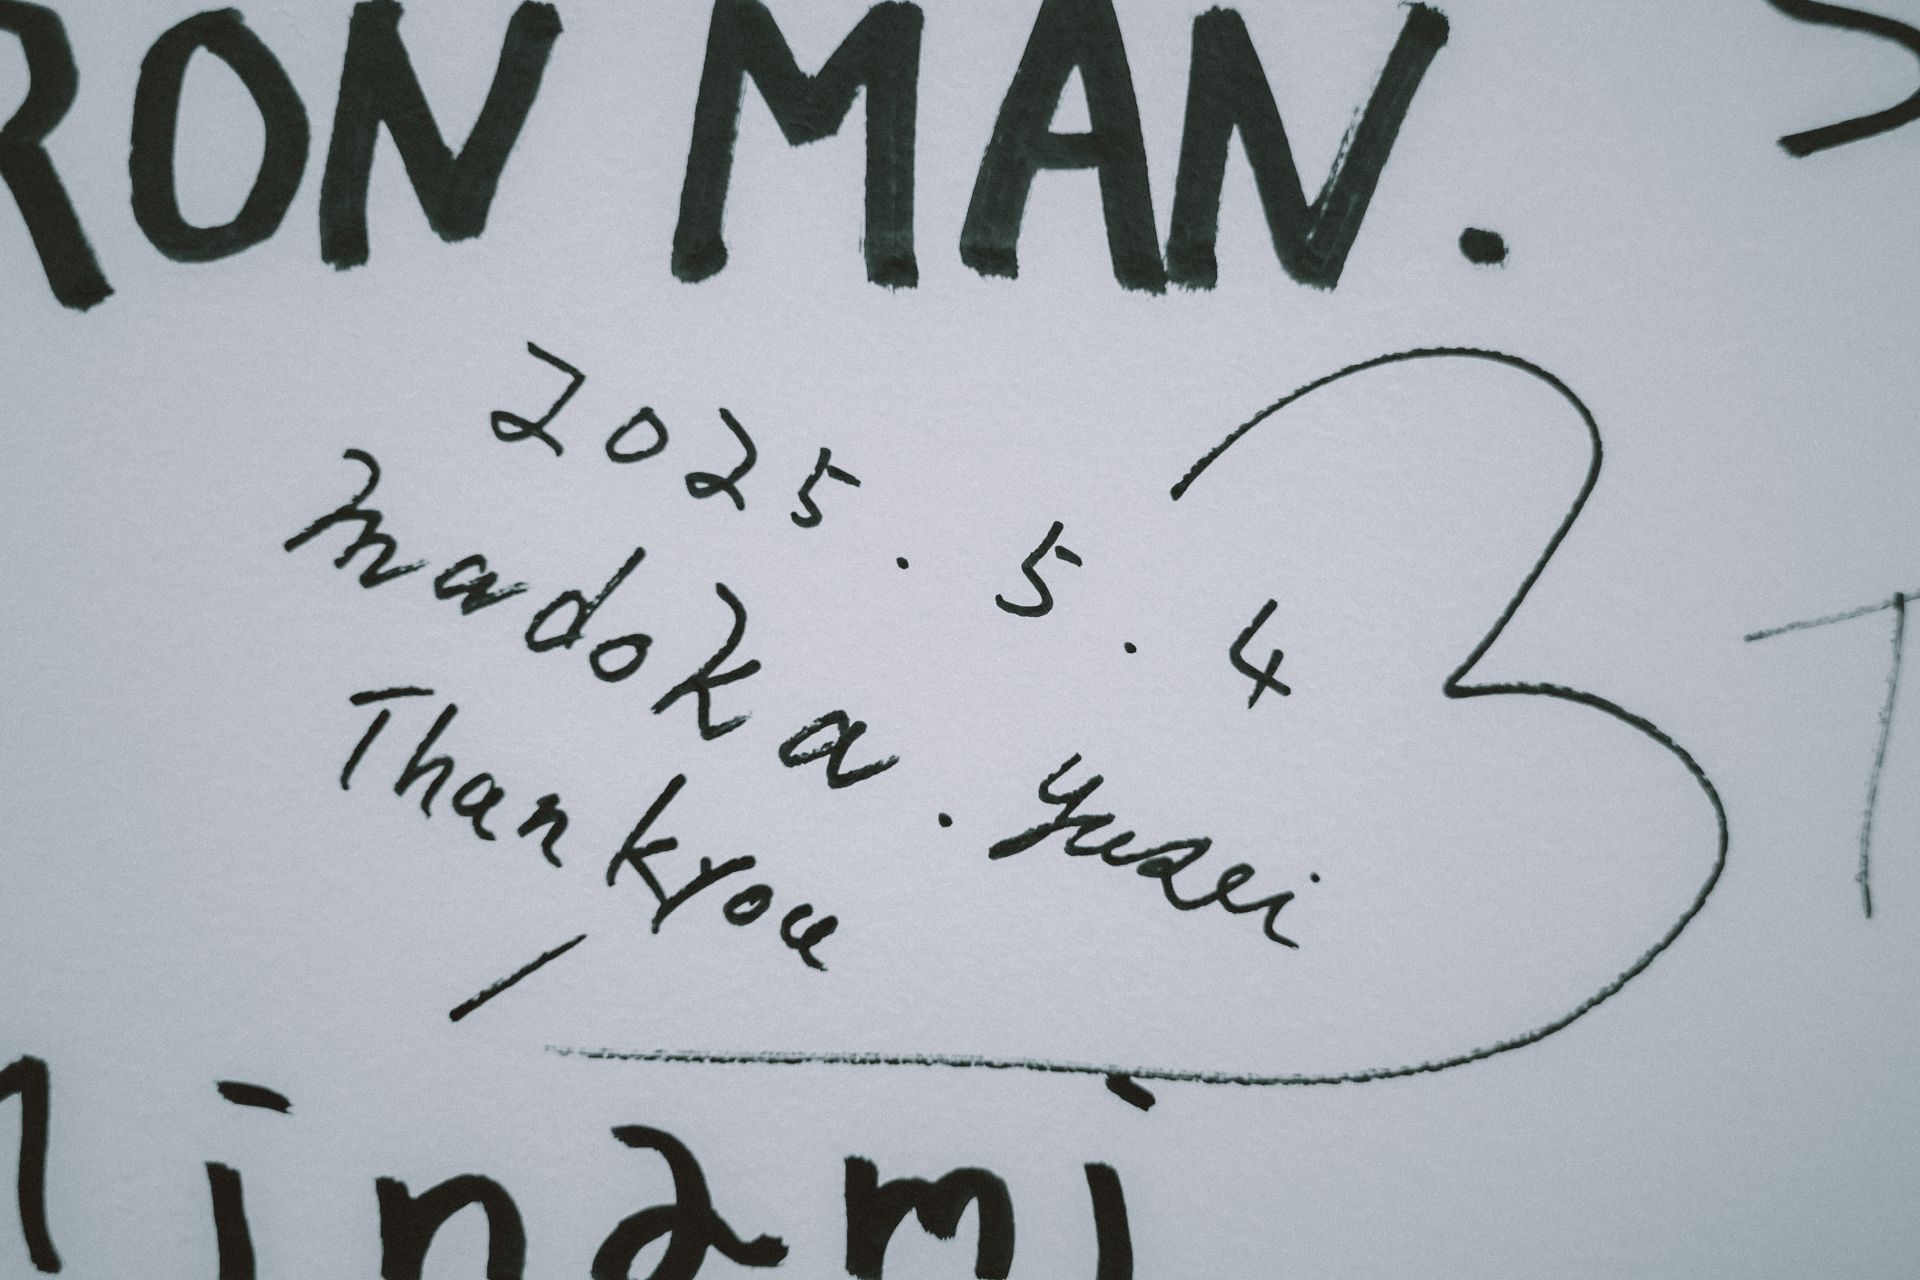 RON MAN.
2025. 5. 4
madoka. yusei
Thankyou
inami